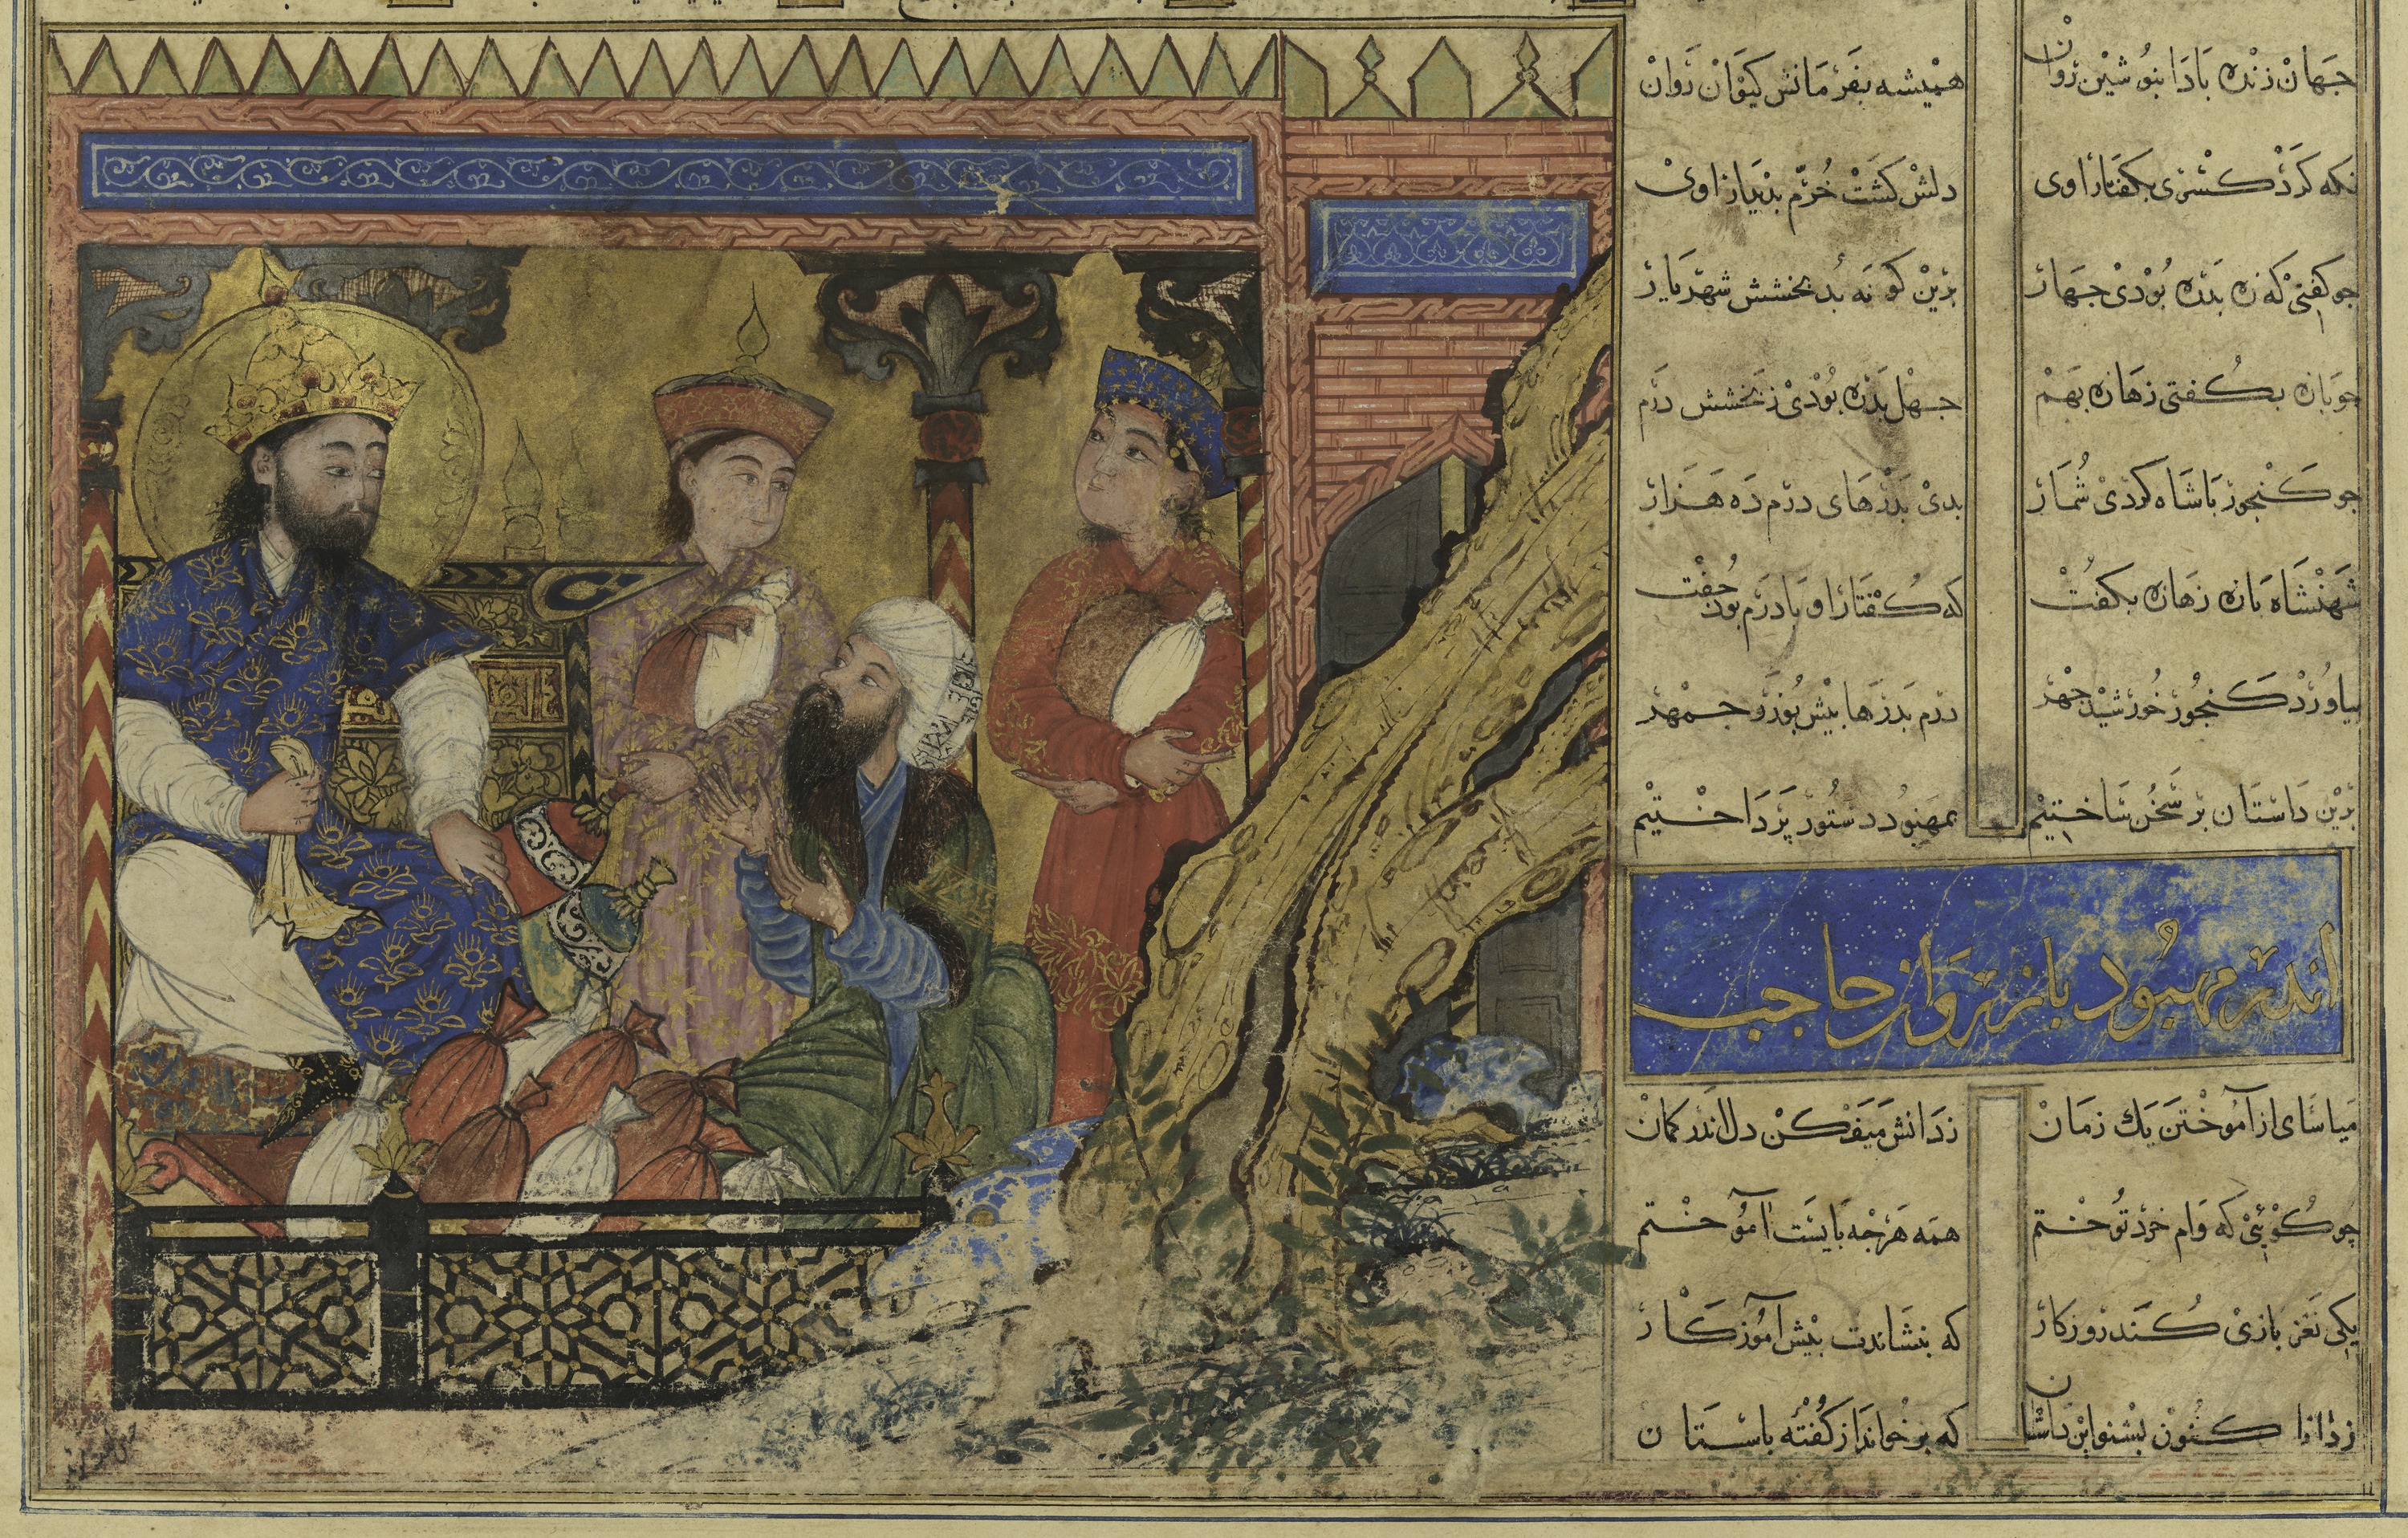 جهان زنده بادا بنوشین روان همیشه بفرمانش کیوان روان
نکه کرد کسری بکفتار اوی دلش کشت خرم بدیدار اوی
جو کفتی که زه بدره بودی جهار برین کونه بد بخشش شهریار
جو با زه بکفتی زهازه بهم جهل بدره بودی ز بخشش درم
جو کنجور با شاه کردی شمار بدی بدرهای درم ده هزار
شهنشاه با زه زهازه بکفت که کفتار او با درم بوذ جفت
بیاورد کنجور خورشید جهر درم بدرها بیش بوزرجمهر
برین داستان بر سخن ساختیم بمهبود دستور پرداختیم
اندر مهبود با زروان حاجب
میاسای از آموختن یك زمان ز دانش میفکن دل اندر کمان
جو کویی که وام خرد توختم همه هرجه بایست آموختم
یکی نغز بازی کند روزکار که بنشاندت بیش آموزکار
کنون بشنو این داستان که برخواند از کفته باستان